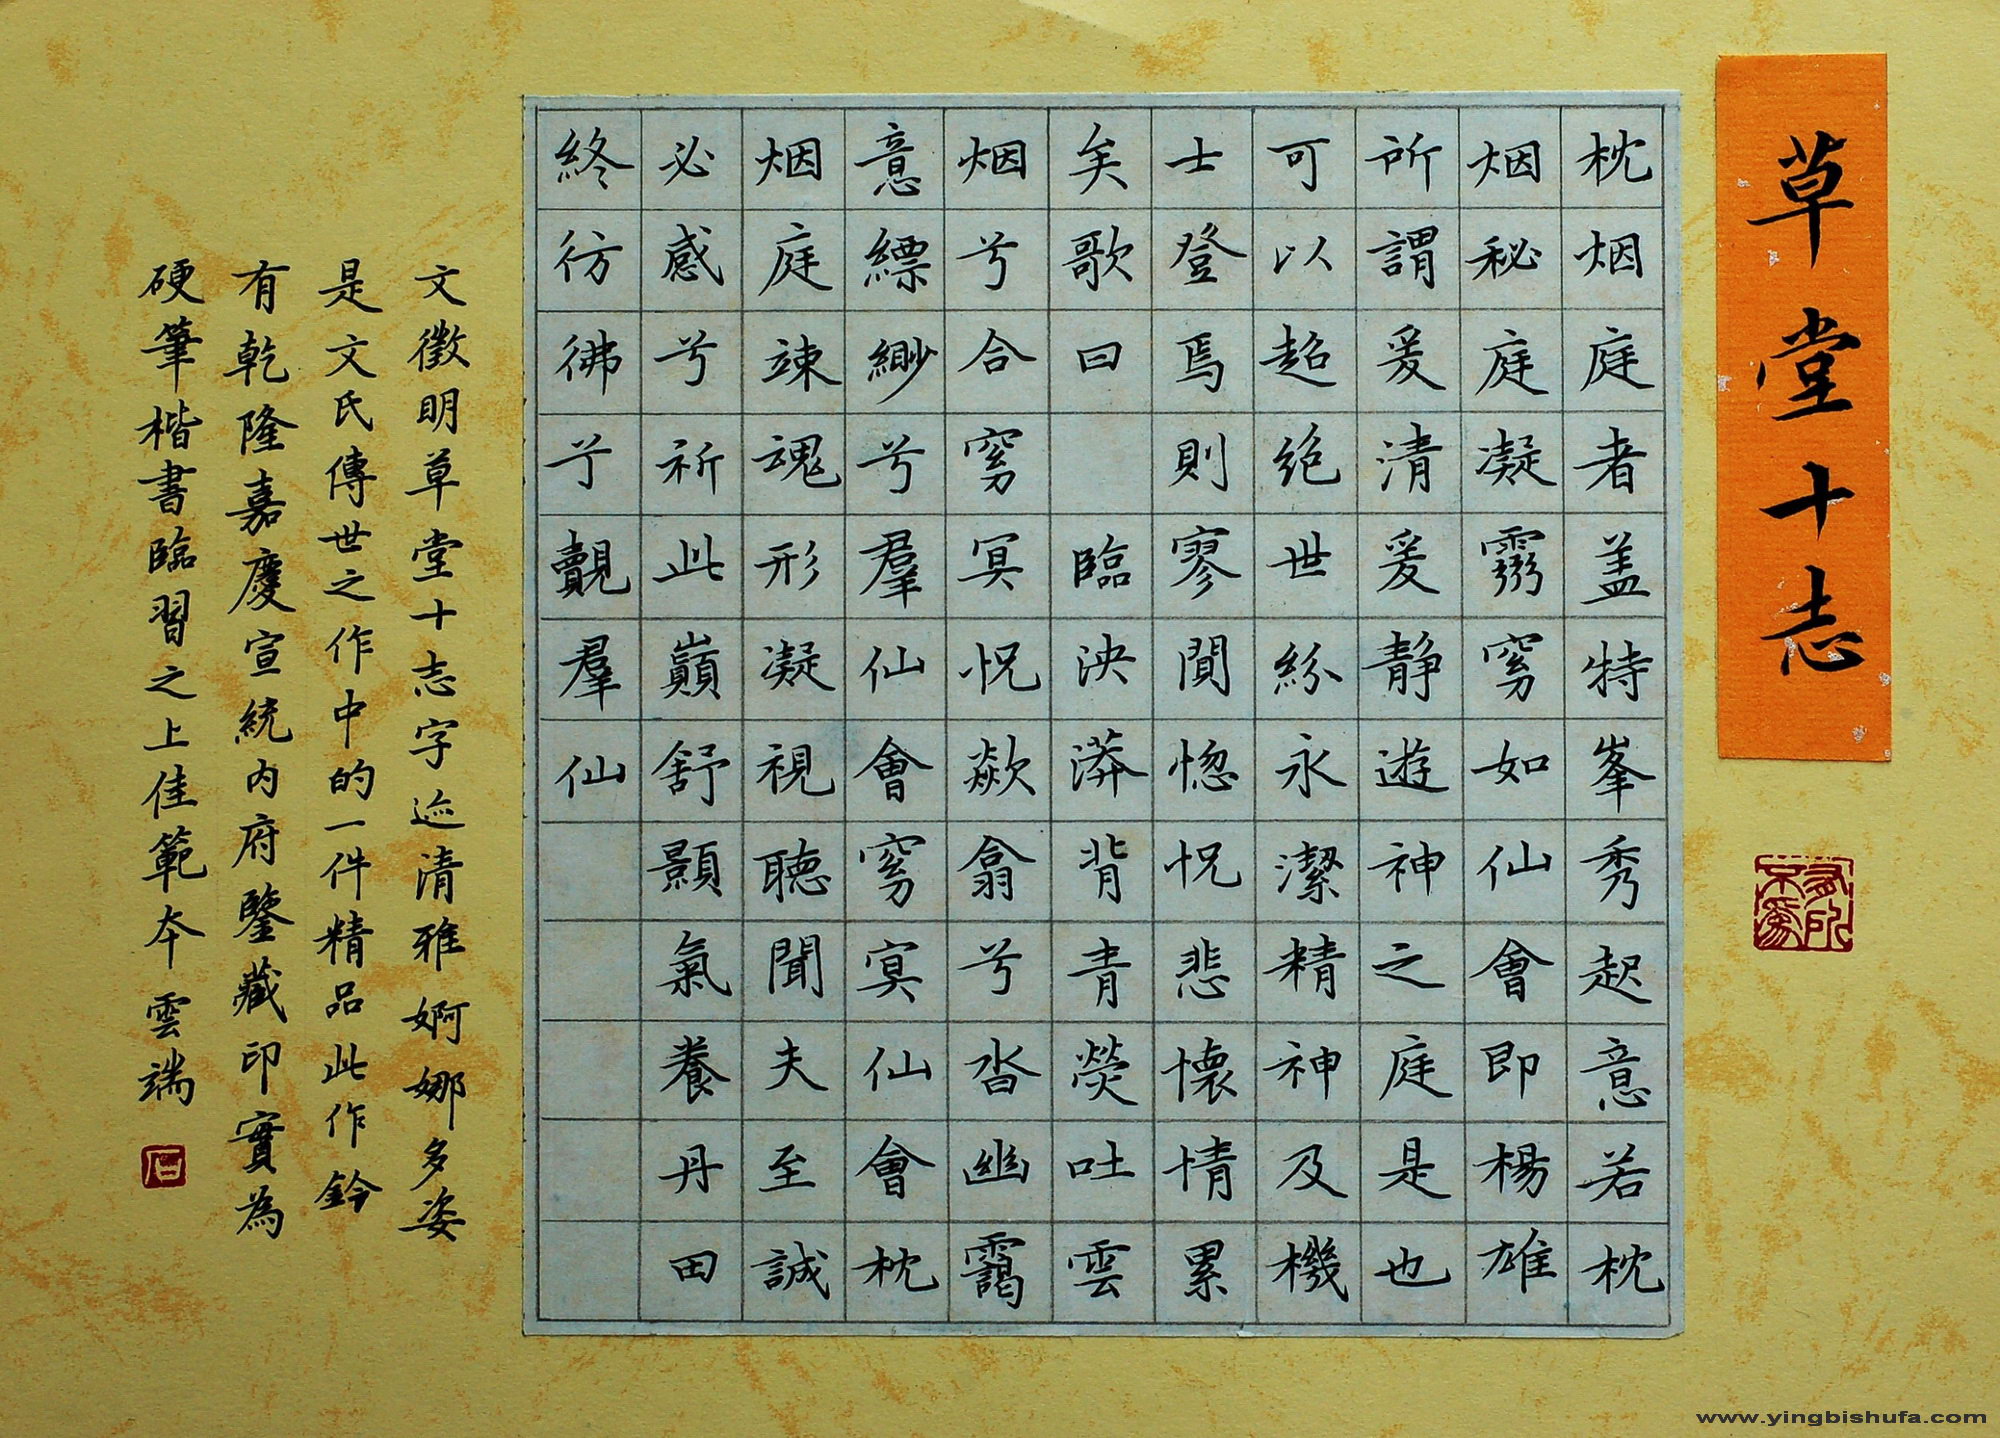 草堂十志
枕烟庭者盖特峯秀起意若枕
烟秘庭凝窮如仙會即楊雄
所謂爰清爰静遊神之庭是也
可以超絶世紛永潔精神及機
士登焉則寥閴惚怳悲懷情累
矣歌曰 臨泱漭背青熒吐雲
烟兮合窈冥怳欻翕兮沓幽靄
意縹緲兮羣仙會窈冥仙會枕
烟庭竦魂形凝視聽聞夫至誠
必感兮祈此巔舒顥氣養丹田
終彷彿兮覿羣仙
文徵明草堂十志字迹清雅婀娜多姿
是文氏傳世之作中的一件精品此作鈐
有乾隆嘉慶宣統内府鑒藏印實為
硬筆楷書臨習之上佳範本雲端
www.yingbishufa.com